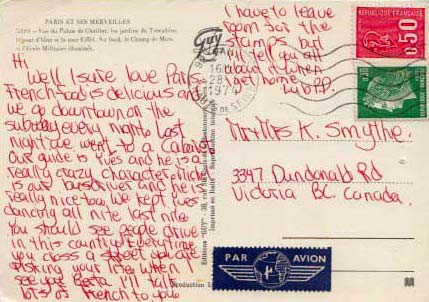 PARIS ET SES MERVEILLES
Vue du Palais de Chaillot: les jardins du Trocadéro,
la tour Eiffel. Au fond, le Champ de Mars
et l'Ecole Militaire
Hi
Well I sure love Paris
French food is delicious and
we go downtown on the
subway every night. Last
night we went to a Cabaret
Our guide is Yves and he is a
really crazy character. Mick
is our busdriver and he is
really nice too. We kept Yves
dancing all nite last nite
You should see people drive
in this country! Everytime
you cross a street you are
risking your life. When I
see you Berta I'll talk
lots of French to you
I have to leave
room for the
stamps but
I'll tell you all
about it when
I get home
Luv
REPUBLIQUE FRANÇAISE
0,50
0,30
Guy
16
28
1974
R. DE SEINE
Editions "GUY"
Imprimé en Italie
Mr & Mrs K. Smythe.
3347 Dundonald Rd
Victoria BC. Canada.
PAR AVION